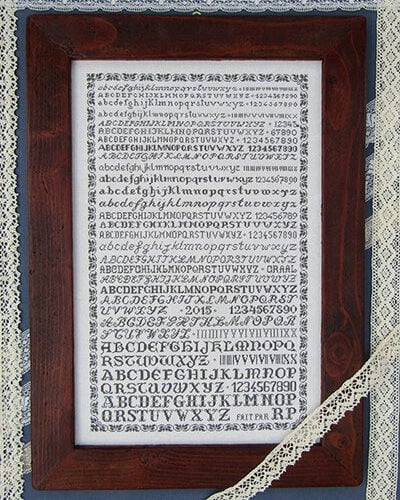 abcdefghijklmnopqrstuvwxyz
abcdefghijklmnopqrstuvwxyz · 1234567890
abcdefghijklmnopqrstuvwxyz
ABCDEFGHIJKLMNOPQRSTUVWXYZ
ABCDEFGHIJKLMNOPQRSTUVWXYZ · 12345
ABCDEFGHIJKLMNOPQRSTUVWXYZ · 67890
ABCDEFGHIJKLMNOPQRSTUVWXYZ 1234567890
ABCDEFGHIJKLMNOPQRSTUVWXYZ
abcdefghijklmnopqrstuvwxyz
abcdefghijklmnopqrstuvwxyz 1234567890
abcdefghijklmnopqrstuvwxyz
ABCDEFGHIJKLMNOPQRSTUVWXYZ 1234567890
ABCDEFGHIJKLMNOPQRSTUVWXYZ
abcdefghijklmnopqrstuvwxyz
ABCDEFGHIJKLMNOPQRSTUVWXYZ
ABCDEFGHIJKLMNOPQRSTUVWXYZ · QRAAL
ABCDEFGHIJKLMNOPQRSTUVWXYZ
ABCDEFGHIJKLMNOPQRSTUVWXYZ
ABCDEFGHIJKLMNOPQRST
UVWXYZ · 2015 · 1234567890
ABCDEFGHIJKLMNOPQR
STUVWXYZ
ABCDEFGHIJKLMNOPQ
RSTUVWXYZ
ABCDEFGHIJKLMNOP
QRSTUVWXYZ · 1234567890
ABCDEFGHIJKLMNOP
QRSTUVWXYZ FAIT PAR RP